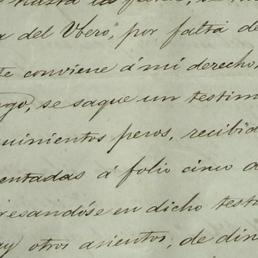 a del Ubero," por falta de
te conviene á mi derecho,
go, se saque un testim
quinientos peros, recibid
entadas á folio cinco d
resandóse en dicho testi
y otros asientos, de din